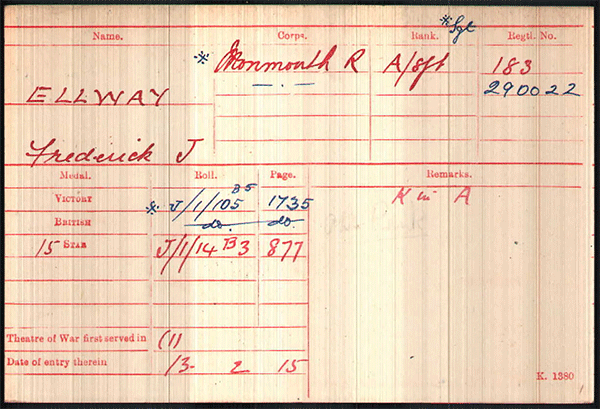 Name. Corps. Rank. Regtl. No.
* Sgt
* Monmouth R A/Sjt 183
ELLWAY — . — 290022
Frederick J
Medal. Roll. Page. Remarks.
Victory * J/1/105 B5 1735 K in A
British do. do.
15 Star J/1/14 B3 877
Theatre of War first served in (1)
Date of entry therein 13- 2 15
K. 1380